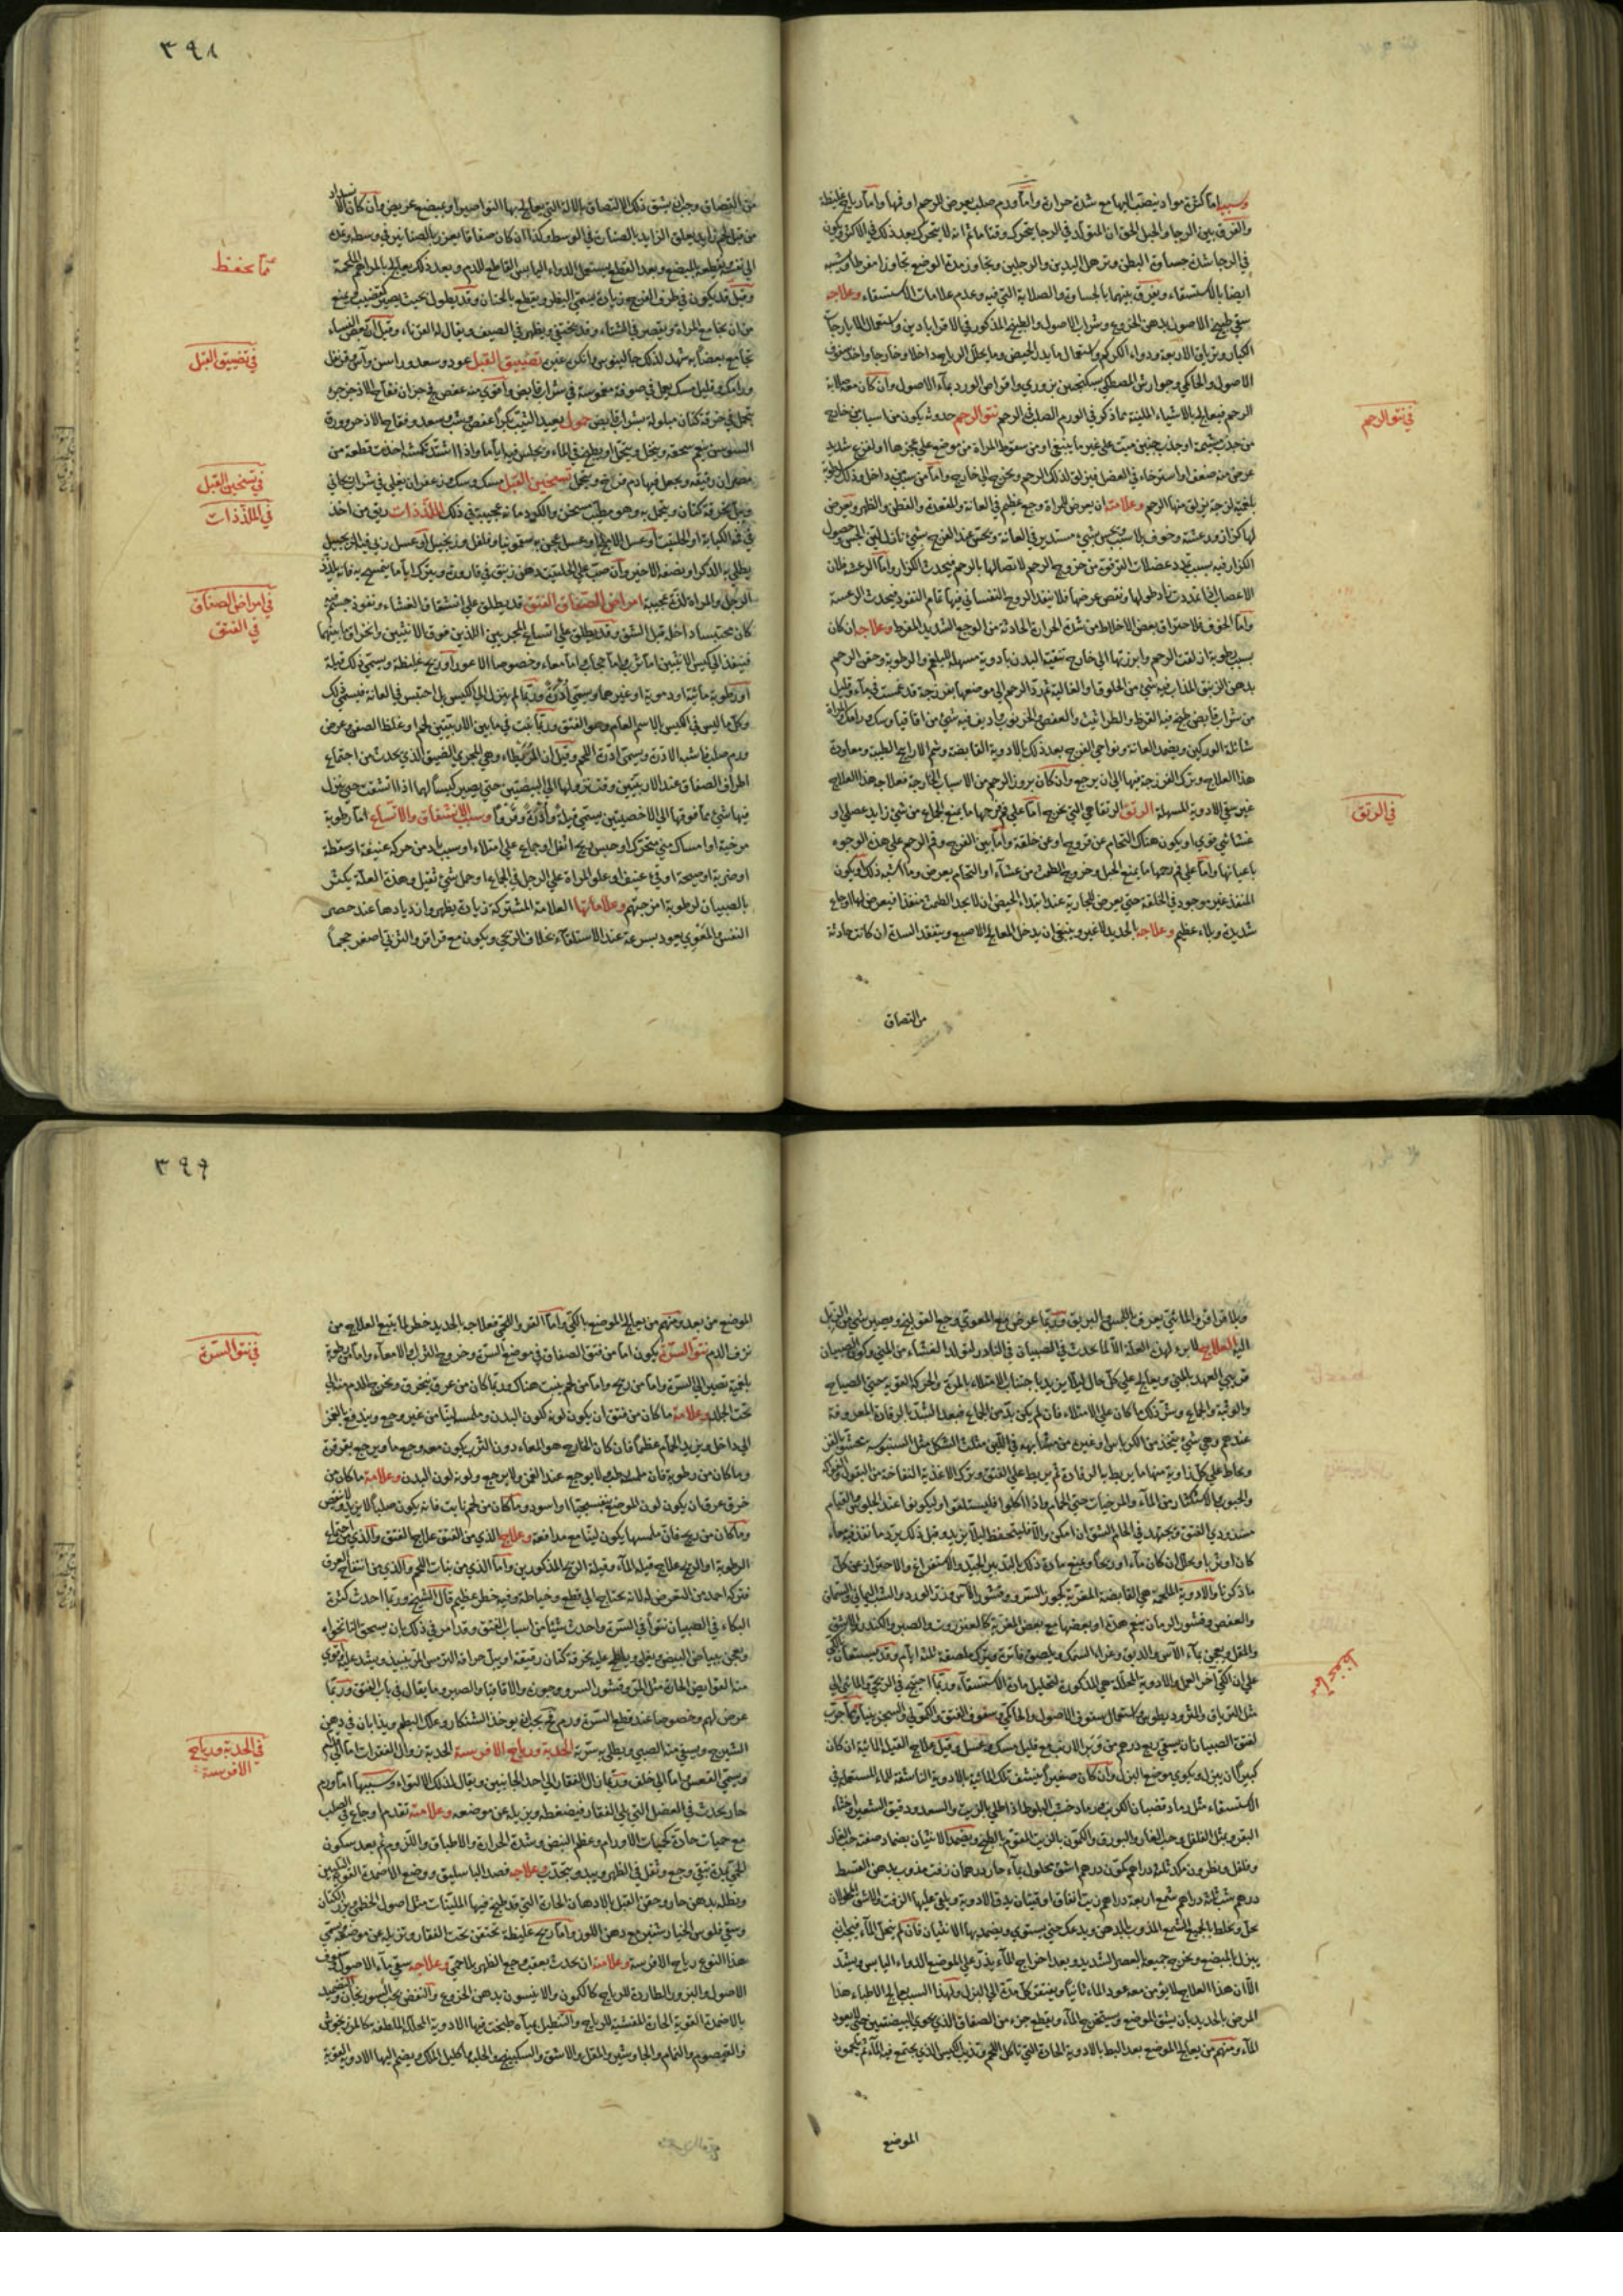 وسببه اما كثرة مواد ينصب اليها مع شدة حرارة واما ورم صلب يعرض للرحم او فمها واما رياح غليظة
والفرق بين الرجا والحبل الحق ان المتولد في الرجا يتحرك وقتا ما ثم انه لا يتحرك بعد ذلك في الاكثر ويكون
في الرجا شدة جساوة البطن وترهل اليدين والرجلين وتجاوز مدة الوضع تجاوزا مفرطا ويشبه
ايضا بالاستسقاء ويفرق بينهما بالجساوة والصلابة التي فيه وعدم علامات الاستسقاء وعلاجه
سقي طبيخ الاصول بدهن الخروع وشراب الاصول والطبيخ المذكور في الاقراباذين واستعمال الايارجات
الكبار وترياق الاربعة ودواء الكركم واستعمال ما يدر الحيض وما يحلل الرياح داخلا وخارجا واخذ سفوف
الاصول والحاكي وجوارش المصطكي بسكنجبين بزوري واقراص الورد بماء الاصول وان كان معه صلابة
الرحم فيعالج بالاشياء الملينة مما ذكر في الورم الصلب في الرحم نتو الرحم حدوثه يكون من اسباب من خارج
في نتو الرحم
من جذب مشيمة او جذب جنين ميت على غير ما ينبغي او من سقوط المراة من موضع على عجزها او لفزع شديد
عرض منه ضعف او استرخاء في العضل فيزلق لذلك الرحم ويخرج الى خارج واما من سبب من داخل وذلك لرطوبة
بلغمية لزجة يزلق منها الرحم وعلامته ان يعرض للمراة وجع عظيم في العانة والمقعدة والقطن والظهر ويعرض
لها كزاز ورعشة وخوف بلا سبب ويحس بشيء مستدير في العانة ويحس عند الفرج بشيء نازل لين المجس وحصول
الكزاز فيه بسبب تمدد عضلات الترقوة من خروج الرحم لاتصالها بالرحم فيحدث الكزاز واما الرعشة فلان
الاعصاب اذا تمددت زاد طولها ونقص عرضها فلا ينفذ الروح النفساني فيها تمام النفوذ فيحدث الرعشة
واما الخوف فلاحتراق بعض الاخلاط من شدة الحرارة الحادثة من الوجع الشديد المفرط وعلاجه ان كان
بسبب رطوبة ازلقت الرحم وابرزتها الى خارج تنقية البدن بادوية مسهلة للبلغم والرطوبة وحقن الرحم
بدهن الزنبق المذاب فيه شيء من الخلوق او الغالية ثم ترد الرحم الى موضعها بفرزجة قد غمست في ماء وقليل
من شراب قابض طبخ فيه القرظ والطراثيث والعفص والخرنوب ويداف فيه شيء من اقاقيا وسك ورامك والمراة
شائلة الوركين ويضمد العانة ونواحي الفرج بعد ذلك بالادوية القابضة وشم الارايح الطيبة ومعاودة
هذا العلاج وترك الفرزجة فيها الى ان يرجع وان كان بروز الرحم من الاسباب الخارجة فعلاجه هذا العلاج
غير سقي الادوية المسهلة الرتق الرتقاء هي التي يخرج اما على فم فرجها ما يمنع الجماع من شيء زايد عضلي او
في الرتق
غشائي قوي او يكون هناك التحام عن قروح او عن خلقة واما بين الفرج وفم الرحم على هذه الوجوه
باعيانها واما على فم رحمها ما يمنع الحبل وخروج الطمث من غشاء او التحام يعرض وما اشبه ذلك او يكون
المنفذ غير موجود في الخلقة حتى يعرض للجارية عند ابتداء الحيض ان لا يجد الطمث منفذا فيعرض لها اوجاع
شديدة وبلاء عظيم وعلاجه الحديد لا غير وينبغي ان يدخل المعالج الاصبع ويتفقد السدة ان كانت حادثة
من التصاق
٣٩٨
من التصاق وجب ان يشق ذلك الالتصاق بالالة التي يعالج بها النواصير او بمبضع عريض وان كان الانسداد
من قبل لحم زايد يعلق الزايد بالصنارة في الوسط وكذا ان كان صفاقا يغرز بالصنانير في وسطه ويمد
الى نفسه ويقطعه بالمبضع وبعد القطع يستعمل الدواء اليابس القاطع للدم وبعد ذلك يعالج بالمراهم الملحمة
مما يحفظ
وقيل قد يكون في طرف الفرج زيادة يسمى البظر ويقطع بالختان وقد يطول بحيث يصير كقضيب يمنع
من ان يجامع المراة ويقصر في الشتاء وقد يختفي ويظهر في الصيف ويقال له القرناء وقيل ان بعض النساء
تجامع بعضا به شهد لذلك جالينوس وانكره غيره تضييق القبل عود وسعد وراسن وآس وقرنفل
في تضييق القبل
ورامك وقليل مسك يجعل في صوفة مغموسة في شراب قابض واقوى منه عفص فج جزآن فقاح الاذخر جزء
يتحمل في خرقة كتان مبلولة بشراب قابض حمول يعيد الثيب بكرا عفص وشب وسعد وفقاح الاذخر وورق
السوسن ينعم سحقه وينخل ويتحمل او يطبخ في الماء ويجلس فيه اياما واذا اشتد كمشه اخذت قطعة من
مصران رقيقة ويجعل فيها دم فرخ ويتحمل تسخين القبل مسك وسك وزعفران يغلي في شراب ريحاني
في تسخين القبل
ويبل بخرقة كتان ويتحمل به وهو مطيب مسخن والكردمانة عجيبة في ذلك الملذذات ريق من اخذ
في الملذذات
في فمه الكبابة او الحلتيت او عسل الاملج او عسل عجن به سقمونيا وفلفل وزنجبيل او عسل ربي فيه الزنجبيل
يطلي به الذكر او نصفه الاخير وان صب على الحلتيت دهن زنبق في قارورة ويترك اياما ثم مسح به فانه يلذذ
الرجل والمراة لذة عجيبة امراض الصفاق الفتق قد يطلق على انشقاق الغشاء ونفوذ جسم فيه
في امراض الصفاق
في الفتق
كان محتبسا داخله قبل الشق وقد يطلق على اتساع المجريين اللذين فوق الانثيين وانخراق ما بينهما
فينفذ الى كيس الانثيين اما ثرب اما حجاب اما معاء وخصوصا الاعور او ريح غليظة ويسمى ذلك قيلة
او رطوبة مائية او دموية او غيرهما ويسمى أدرة وربما لم ينزل الى الكيس بل احتبس في العانة فيسمى ذلك
وكل ما ليس في الكيس بالاسم العام وهو الفتق وربما نبت في ما بين الاربيتين لحم او غلظ الصفن وعرض
اطراف الصفاق عند الاربيتين وقت نزولها الى البيضتين حتى يصير كيسا لهما اذا انشقت حتى ينزل
فيها شيء مما فوقها الى الاخصيتين يسمى قيلة وأدرة وقروا وسبب الانشقاق والاتساع اما رطوبة
مرخية او امساك مني متحرك او حبس ريح اثقل او جماع على امتلاء او سبب باد من حركة عنيفة او سقطة
او ضربة او صيحة او قيء عنيف او علو المراة على الرجل في الجماع او حمل شيء ثقيل وهذه العلة يكثر
بالصبيان لرطوبة امزجتهم وعلاماتها العلامة المشتركة زيادة يظهر وازديادها عند حصر
النفس والمعوي يعود بسرعة عند الاستلقاء بخلاف الريحي ويكون مع قراقر والثربي اصغر حجما
وبلا قراقر والمائي يعرف باللمس والبريق وربما عرض مع المعوي وجع القولنج ويصير شيء من الزبل
اليه العلاج لا برء لهذه العلة الا لما يحدث في الصبيان في النادر لتولد الغشاء من المني وكون الصبيان
قريبي العهد بالمني ويعالج على كل حال ليلا يزيد باجتناب الامتلاء بالمرة والحركة القوية حتى الصياح
والوثبة والجماع وشر ذلك ما كان على الامتلاء فان لم يكن بد من الجماع فبعد الشد بالرفادة المعروفة
عندهم وهي شيء يتخذ من الكرباس او غيره من مشابهه في اللين مثلث الشكل مثل السنبوسه يحشى بالقز
ويخاط على كل زاوية منها ما يربط بالرفادة ثم يربط على الفتق ويترك الاغذية النفاخة من البقول والفواكه
والحبوب والاستكثار من الماء والمرخيات حتى الحمام واذا اكلوا فليستلقوا وليكونوا عند الجلوس والقيام
مشدودي الفتق ويجتهد في الحام الشق ان امكن والا فليتحفظ ليلا يزيد وقبل ذلك يرد ما نفذ فيه معاء
كان او ثربا ويحلل ان كان ماء او ريحا ويمنع مادة ذلك بالتدبير الجيد والاستفراغ والاحتراز عن كل
ما ذكرنا والادوية الملحمة هي القابضة المغرية كجوز السرو وقشور الآس وبزر الورد والشب اليماني والسمان
والعفص وقشور الرمان ينفع هذه او بعضها مع بعض المغرية كالعنزروت والصبر والكندر والاشق
والمقل ويعجن بماء الآس والدبق وغراء السمك ويلصق فاترا ويترك ملصقة ثلثة ايام وقد يستعان بالكي
على ان الكي آخر العمل والادوية المحللة هي المذكورة لتحليل مادة الاستسقاء وربما احتيج في الريحي والمائي الى
مثل الترياق والمثروديطوس واستعمال سفوف الاصول والحاكي وسفوف الفتق والكموني والسجزنيا ومما جرب
مما جرب
لفتق الصبيان ان يسقي ربع درهم من وبر الارنب مع قليل مسك وعسل وقيل علاج القيلة المائية ان كان
كبيرا ان يبزل ويكوى موضع البزل وان كان صغيرا فينشف تلك المائية بالادوية الناشفة للماء المستعملة في
الاستسقاء مثل رماد قضبان الكرنب ورماد خشب البلوط اذا طلي بالزيت والسعد ودقيق الشعير واخثاء
البقر ومثل الفلفل وحب الغار والبورق والكمون بالزيت المقوم بالطبخ ويضمد الانثيان بضماد صفته حب الغار
وفلفل ونطرون من كل ثلثة دراهم كمون درهم اشق محلول بماء حار درهمان زفت مذوب بدهن القسط
درهم شب ثلثة دراهم شمع اربعة دراهم زيت انفاق اوقيتان يدق الادوية ويلقى عليها الزفت والاشق المحلولان
بحل ويخلط بالجميع الشمع المذوب بالدهن ويدعك حتى يستوي ويضمد بها الانثيان فان لم ينحل الماء فيجب ان
يبزل بالمبضع ويخرج جميعه العصر الشديد وبعد اخراج الماء يذر على الموضع الدواء اليابس ويشد
الا ان هذا العلاج لا يؤمن معه عود الماء ثانيا ويفتقر كل مدة الى البزل ولهذا السبب يعالج الاطباء هذا
المرض بالحديد بان يشق الموضع ويستخرج الماء ويقطع جزء من الصفاق الذي يحوي البيضتين حتى لا يعود
الماء ومنهم من يعالج الموضع بعد البط بالادوية الحادة التي تاكل اللحم وتذيب الكيس الذي يجتمع فيه الماء ثم يلحمون
الموضع
٣٩٩
الموضع من بعد ومنهم من يعالج الموضع بالكي واما القرو اللحمي فعلاجه بالحديد خطر لما يتبع العلاج من
نزف الدم نتو السرة يكون اما من فتق الصفاق في موضع السرة وخروج الثرب او الامعاء واما من رطوبة
في نتو السرة
بلغمية تصير الى السرة واما من ريح واما من لحم ينبت هناك وربما كان من عرق ينخرق ويخرج الدم منه الى
تحت الجلد وعلامة ما كان من فتق ان يكون لونه كلون البدن وملمسه لينا من غير وجع ويندفع بالغمز
الى داخل ويزيد الحمام عظما فان كان الخارج هو المعاء دون الثرب يكون معه وجع ما ويرجع بقرقرة
وما كان من رطوبة فان ملمسه رطب لا يوجع عند الغمز ولا يرجع ولونه لون البدن وعلامة ما كان من
خرق عرق ان يكون لون الموضع بنفسجيا او اسود وما كان من لحم نابت فانه يكون صلبا لا يزيد ولا ينقص
وما كان من ريح فان ملمسها يكون لينا مع مدافعة وعلاج الذي من الفتق علاج الفتق والذي من اجتماع
الرطوبة او الريح علاج قيلة الماء وقيلة الريح المذكورين واما الذي من نبات اللحم والذي من انتفاخ العرق
فتركه احمد من التعرض له لانه يحتاج الى قطع وخياطة وفيه خطر عظيم قال الشيخ وربما احدث كثرة
البكاء في الصبيان نتوا في السرة واحدث شيئا من اسباب الفتق وقد امر في ذلك بان يسحق النانخواه
ويعجن ببياض البيض ويعلى ويلطخ عليه بخرقة كتان رقيقة او يبل حراقة الترمس المر بنبيذ ويشد عليه اقوى
منه القوابض الحارة مثل المر وقشور السرو وجوزه والاقاقيا والصبر وما يقال في باب الفتق وربما
عرض لهم وخصوصا عند قطع السرة ورم فح يجب ان يوخذ الشنكار وعلك البطم ويذابان في دهن
الشيرج ويسقي منه الصبي ويطلي به سرته الحدبة ورياح الافرسة الحدبة زوال الفقرات اما الى قدام
في الحدبة ورياح
الافرسة
ويسمى القعس اما الى خلف وربما زال الفقار الى احد الجانبين ويقال لذلك الالتواء وسببها اما ورم
حار يحدث في العضل التي تلي الفقار فيضغطه ويزيله عن موضعه وعلامته تقدم اوجاع في الصلب
مع حميات حادة كحميات الاورام وعظم النبض وشدة الحرارة والاطباق واللزوم ثم بعد سكون
الحمى بمدة تبقى وجع وثقل في الظهر ويبدو يتحدب وعلاجه فصد الباسليق ووضع الاضمدة القوية التليين
ونطله بدهن حار وحقن القبل بالادهان الحارة التي قد طبخ فيها الملينات مثل اصول الخطمي وبزر الكتان
وسقي فلوس الخيار شنبر مع دهن اللوز واما ريح غليظة تحتقن تحت الفقار وتزيله عن موضعه ويسمى
هذا النوع رياح الافرسة وعلامته ان يحدث بعقب وجع الظهر بلا حمى وعلاجه سقي ماء الاصول وسفوف
الاصول والبزور الطاردة للرياح كالكمون والانيسون بدهن الخروع والنفض بحب السورنجان والتضميد
بالاضمدة القوية الحارة المفشية للرياح والتنطيل بمياه طبخت فيها الادوية المحللة الملطفة كالمرزنجوش
والقيصوم والنمام والجاوشير والمقل والاشق والسكبينج والحلبة واكليل الملك ويضم اليها الادوية المقوية